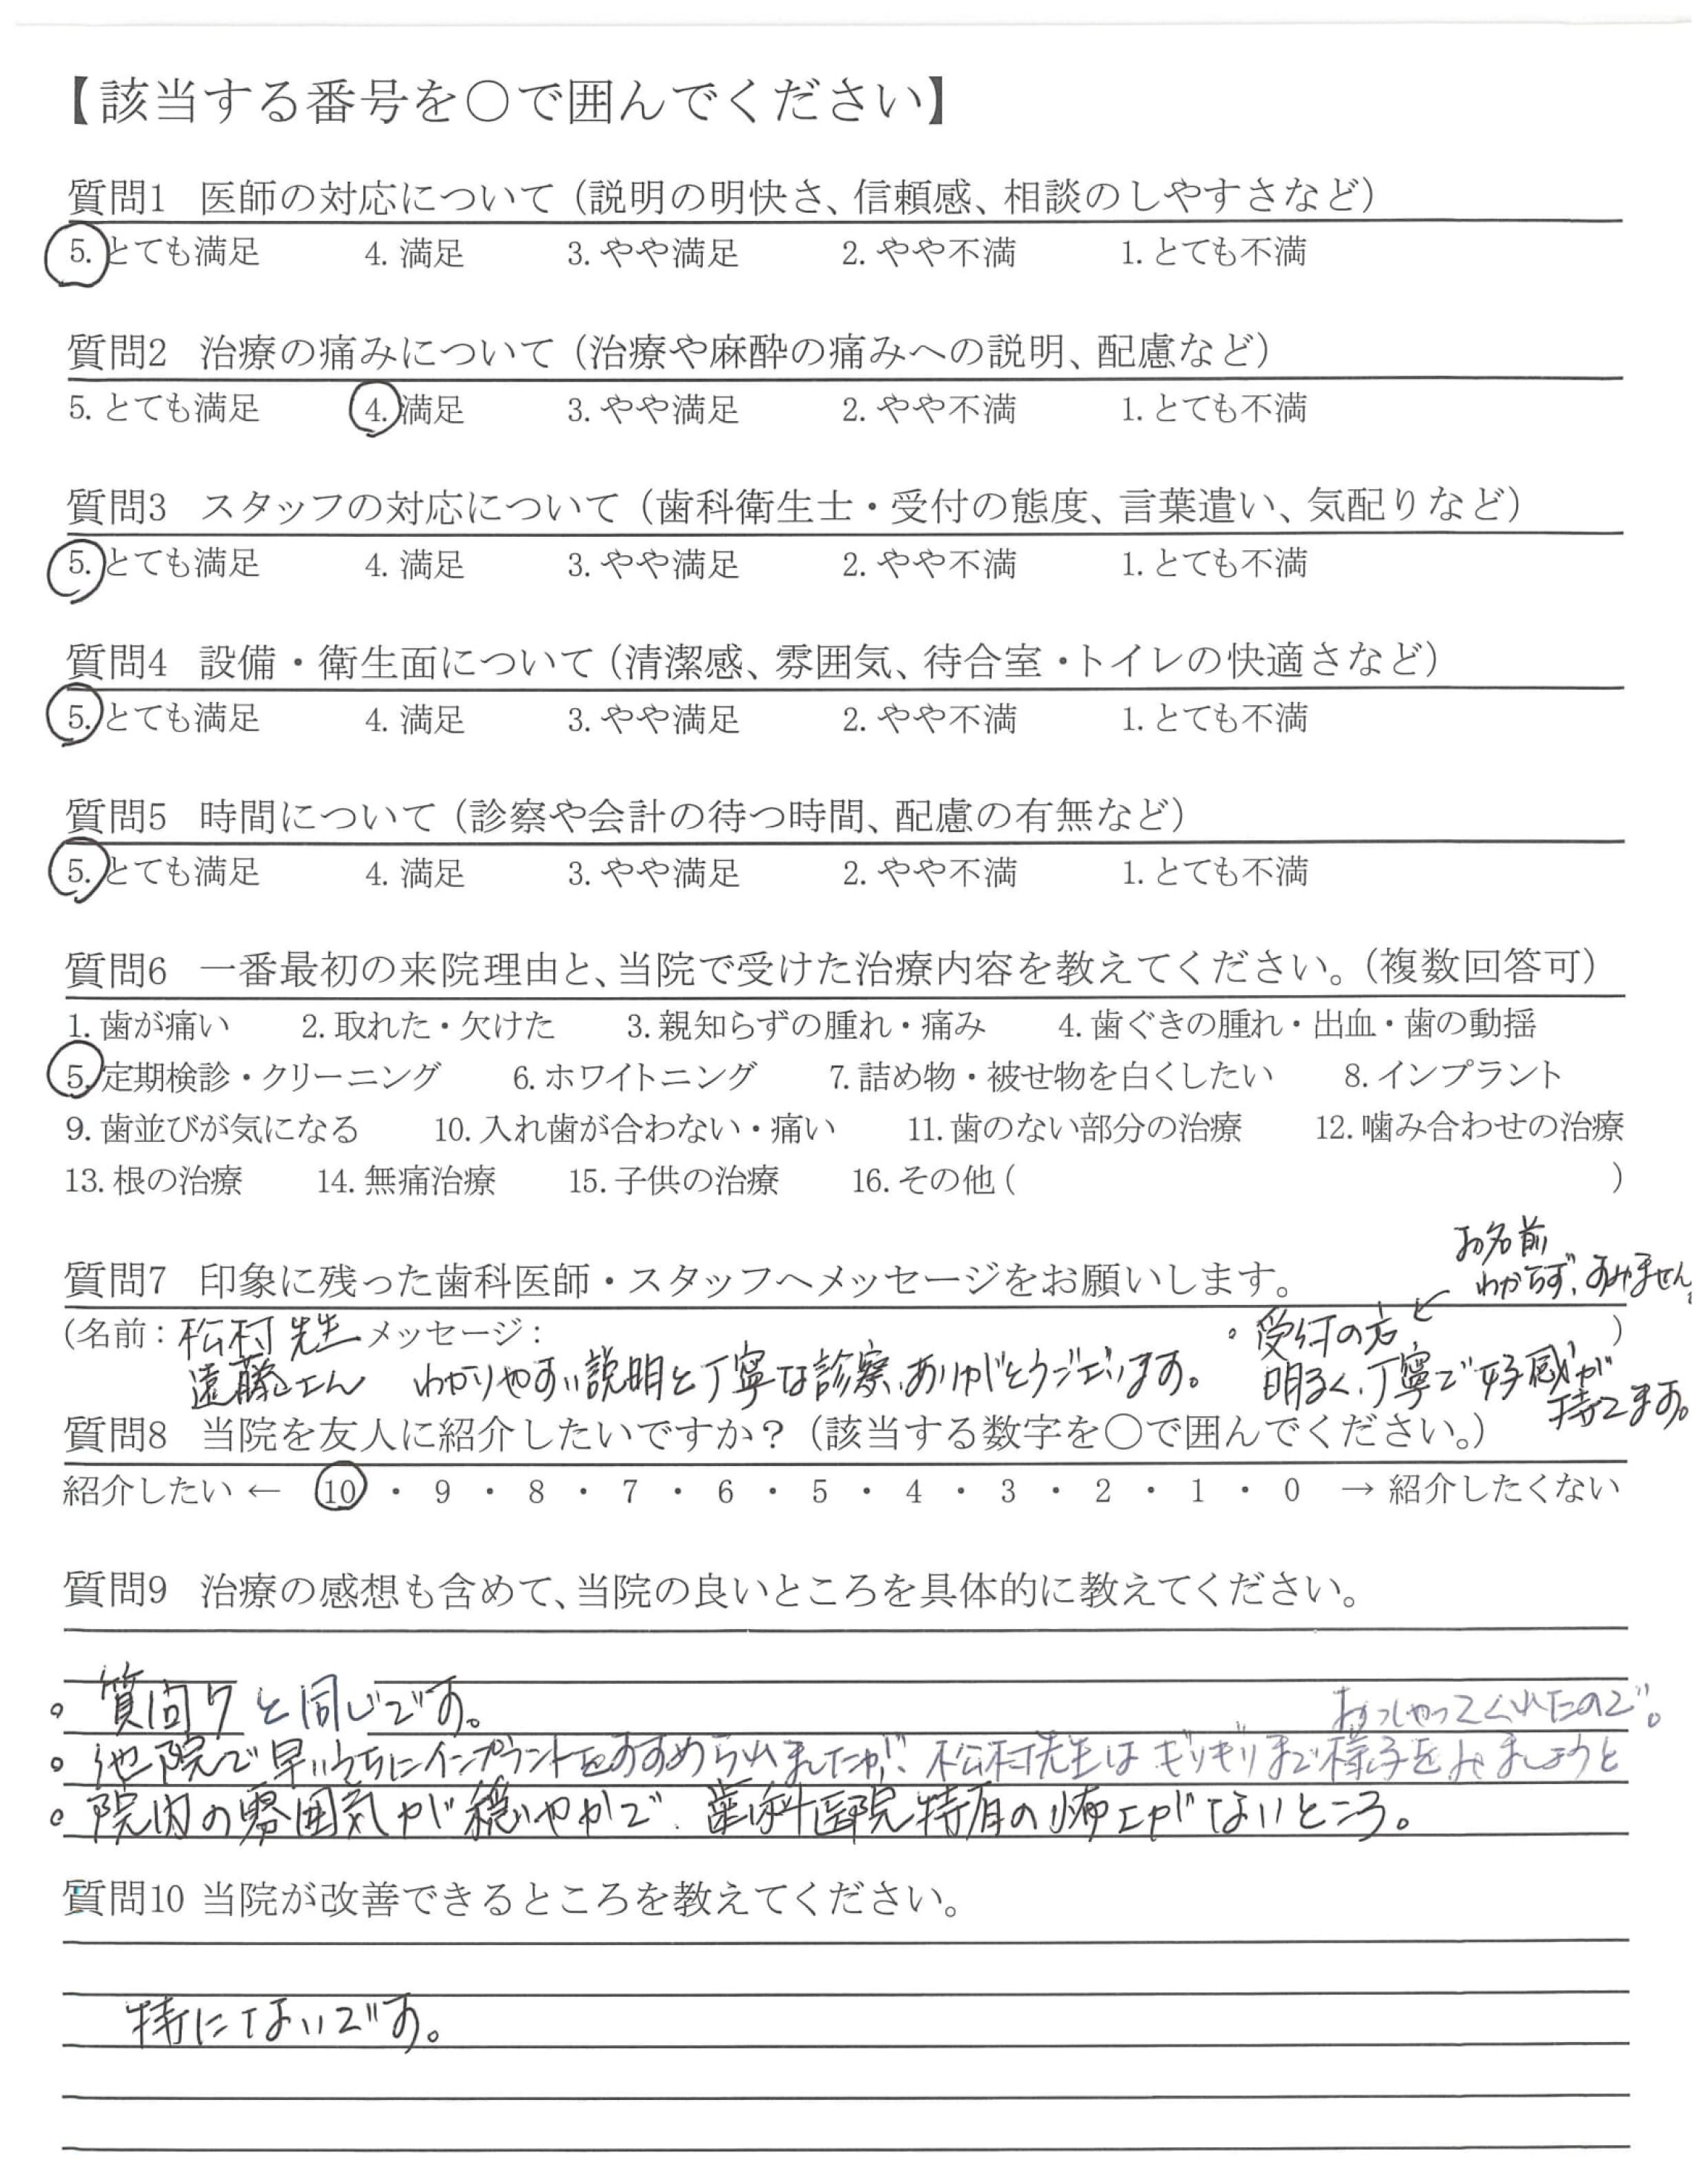 【該当する番号を○で囲んでください】
質問1 医師の対応について（説明の明快さ、信頼感、相談のしやすさなど）
5. とても満足 4. 満足 3. やや満足 2. やや不満 1. とても不満
質問2 治療の痛みについて（治療や麻酔の痛みへの説明、配慮など）
5. とても満足 4. 満足 3. やや満足 2. やや不満 1. とても不満
質問3 スタッフの対応について（歯科衛生士・受付の態度、言葉遣い、気配りなど）
5. とても満足 4. 満足 3. やや満足 2. やや不満 1. とても不満
質問4 設備・衛生面について（清潔感、雰囲気、待合室・トイレの快適さなど）
5. とても満足 4. 満足 3. やや満足 2. やや不満 1. とても不満
質問5 時間について（診察や会計の待つ時間、配慮の有無など）
5. とても満足 4. 満足 3. やや満足 2. やや不満 1. とても不満
質問6 一番最初の来院理由と、当院で受けた治療内容を教えてください。（複数回答可）
1. 歯が痛い 2. 取れた・欠けた 3. 親知らずの腫れ・痛み 4. 歯ぐきの腫れ・出血・歯の動揺
5. 定期検診・クリーニング 6. ホワイトニング 7. 詰め物・被せ物を白くしたい 8. インプラント
9. 歯並びが気になる 10. 入れ歯が合わない・痛い 11. 歯のない部分の治療 12. 噛み合わせの治療
13. 根の治療 14. 無痛治療 15. 子供の治療 16. その他（ ）
お名前
わからず、すみません。
質問7 印象に残った歯科医師・スタッフへメッセージをお願いします。
（名前：松村先生 メッセージ： 。受付の方 ← ）
遠藤さん わかりやすい説明と丁寧な診察、ありがとうございます。 明るく、丁寧で好感が
持てます。
質問8 当院を友人に紹介したいですか？（該当する数字を○で囲んでください。）
紹介したい ← 10 ・ 9 ・ 8 ・ 7 ・ 6 ・ 5 ・ 4 ・ 3 ・ 2 ・ 1 ・ 0 → 紹介したくない
質問9 治療の感想も含めて、当院の良いところを具体的に教えてください。
。質問7と同じです。
。他院で早いうちにインプラントをすすめられましたが、松村先生はギリギリまで様子をみましょうと
おっしゃってくれたので。
。院内の雰囲気が穏やかで、歯科医院特有の怖さがないところ。
質問10 当院が改善できるところを教えてください。
特にないです。